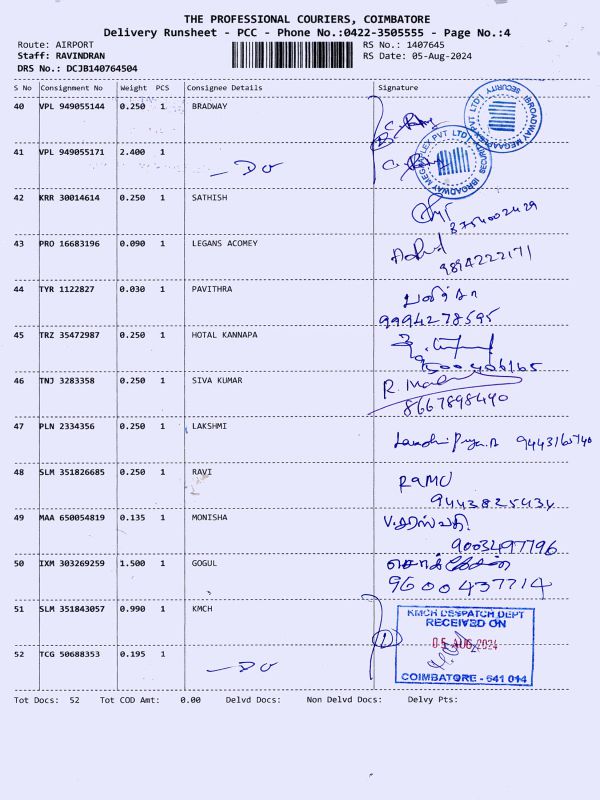 THE PROFESSIONAL COURIERS, COIMBATORE
Delivery Runsheet - PCC - Phone No.:0422-3505555 - Page No.:4
Route: AIRPORT RS No.: 1407645
Staff: RAVINDRAN RS Date: 05-Aug-2024
DRS No.: DCJB140764504
S No Consignment No Weight PCS Consignee Details Signature
40 VPL 949055144 0.250 1 BRADWAY
41 VPL 949055171 2.400 1 — DO
IBROADWAY MEGAAPLEX PVT LTD SECURITY
IBROADWAY MEGAAPLEX PVT LTD SECURITY
42 KRR 30014614 0.250 1 SATHISH
8754002429
43 PRO 16683196 0.090 1 LEGANS ACOMEY
9894222171
44 TYR 1122827 0.030 1 PAVITHRA
9994278595
45 TRZ 35472987 0.250 1 HOTAL KANNAPA
9500406165
46 TNJ 3283358 0.250 1 SIVA KUMAR
8667898490
47 PLN 2334356 0.250 1 LAKSHMI
48 SLM 351826685 0.250 1 RAVI RAMU
9443825434
49 MAA 650054819 0.135 1 MONISHA
9003497796
50 IXM 303269259 1.500 1 GOGUL
9600437714
51 SLM 351843057 0.990 1 KMCH
KMCH DESPATCH DEPT
RECEIVED ON
05 AUG 2024
COIMBATORE - 641 014
52 TCG 50688353 0.195 1 — DO
Tot Docs: 52 Tot COD Amt: 0.00 Delvd Docs: Non Delvd Docs: Delvy Pts: